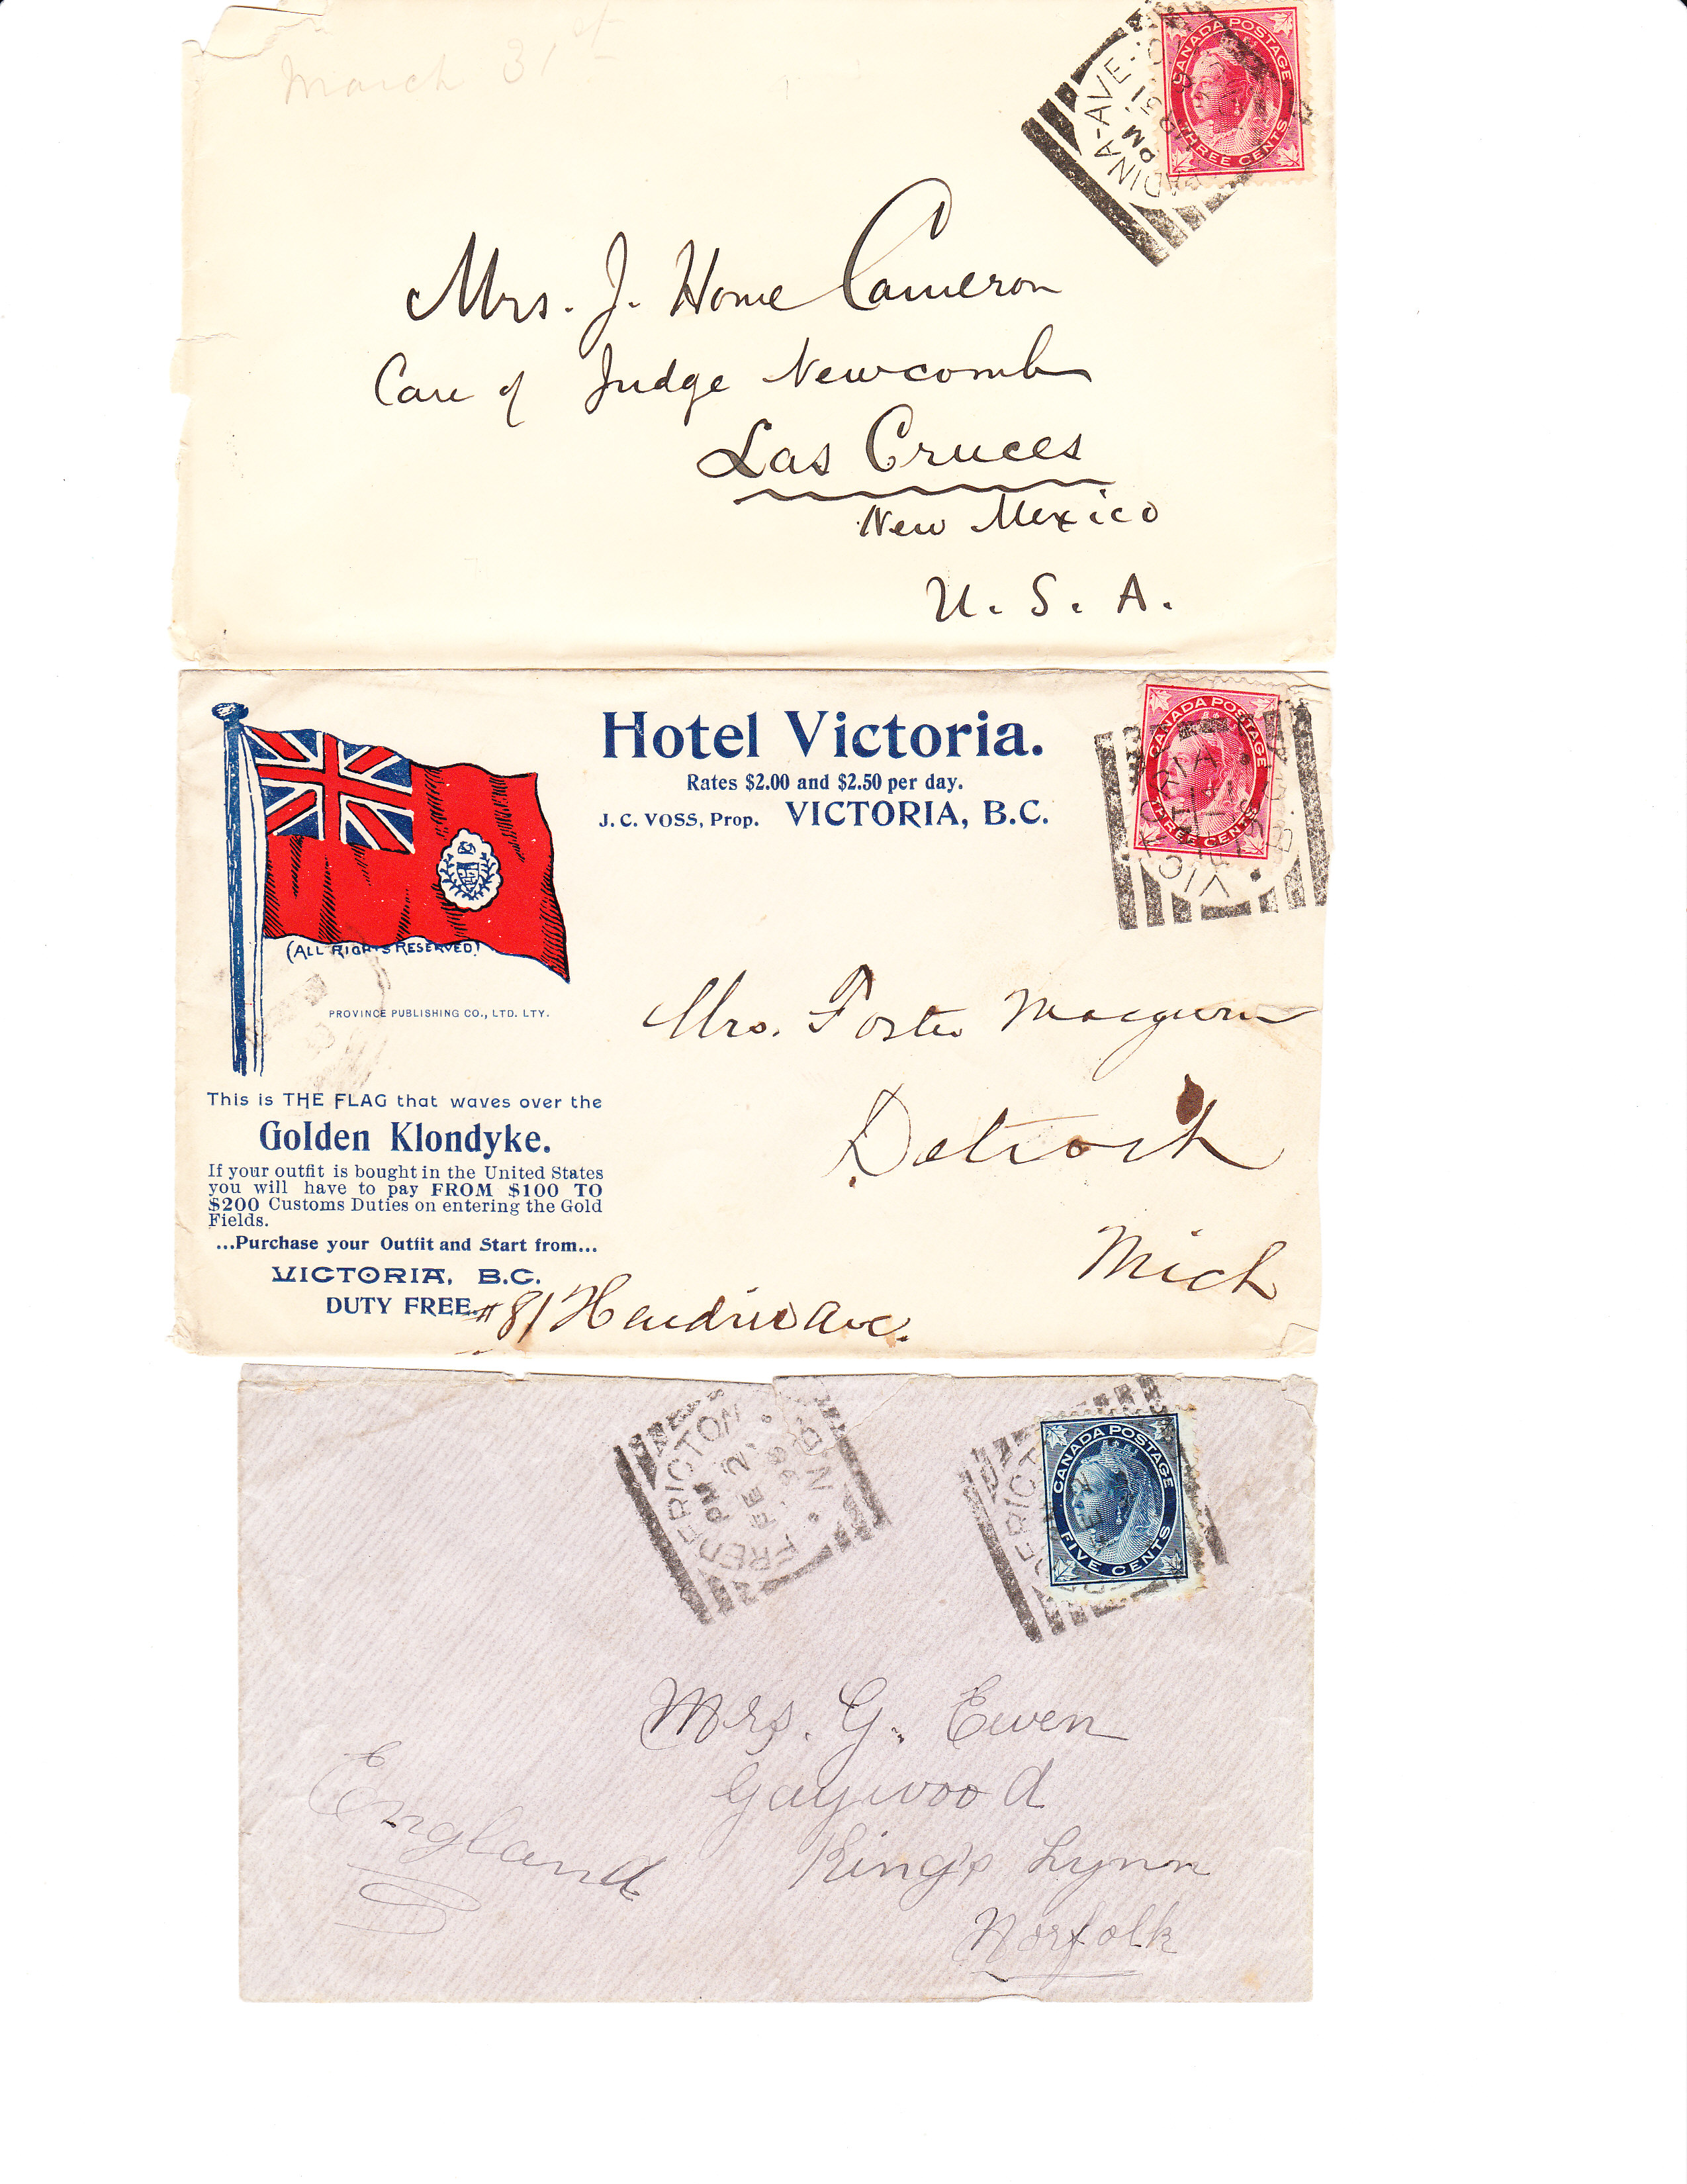 March 31st
CANADA POSTAGE
THREE CENTS
DINA-AVE-
PM
31
Mrs. J. Home Cameron
Care of Judge Newcomb
Las Cruces
New Mexico
U. S. A.
Hotel Victoria.
Rates $2.00 and $2.50 per day.
J. C. VOSS, Prop. VICTORIA, B.C.
CANADA POSTAGE
THREE CENTS
(ALL RIGHTS RESERVED)
PROVINCE PUBLISHING CO., LTD. LTY.
Mrs. Foster
Detroit
Mich
This is THE FLAG that waves over the
Golden Klondyke.
If your outfit is bought in the United States
you will have to pay FROM $100 TO
$200 Customs Duties on entering the Gold
Fields.
...Purchase your Outfit and Start from...
VICTORIA, B.C.
DUTY FREE.
#81 Hendrie Ave.
FREDERICTON
PM 2
FE 21
98
N.B.
CANADA POSTAGE
FIVE CENTS
Mrs. G. Ewen
Gaywood
King's Lynn
Norfolk
England